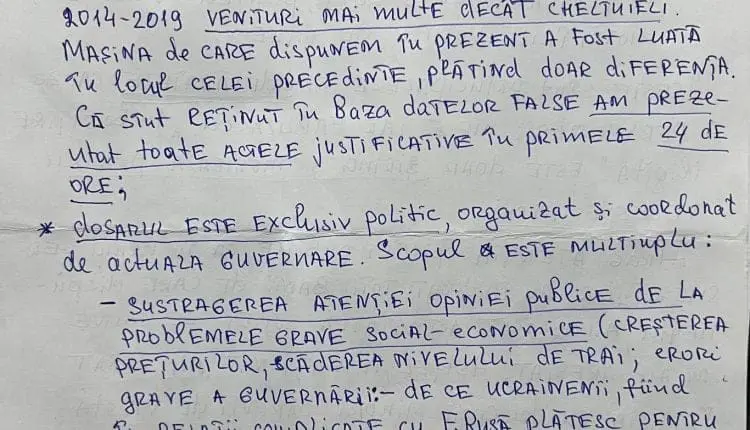 2014-2019 VENITURI MAI MULTE dECÂT CHELTUIELI.
MAȘINA de CARE dispuNEM ÎN PREZENT A FOST LUATĂ
ÎN locul CELEI PRECEdINTE, PLĂTINd DOAR diFERENȚA.
CĂ SÎNT REȚINUT ÎN BAZA dATELOR FALSE AM PREZE-
NTAT toATE ACTELE JUSTIFICATIVE ÎN PRIMELE 24 dE
ORE;
* dOSARUL ESTE EXCLUSIV politic, ORGANIZAT și COORdonat
de ACTUALA GUVERNARE. Scopul ESTE MULTIPLU:
- SUSTRAGEREA ATENȚIEI OPINIEI publicE dE LA
PROBLEMELE GRAVE SOCIAL-ECONOMICE (CREȘTEREA
PREȚURILOR, SCĂDEREA NIVELULUI DE TRAI; ERORI
GRAVE A GUVERNĂRII:- DE CE UCRAINENII, fiind
RELAȚII COMPLICATE CU F.RUSĂ PLĂTESC PENTRU